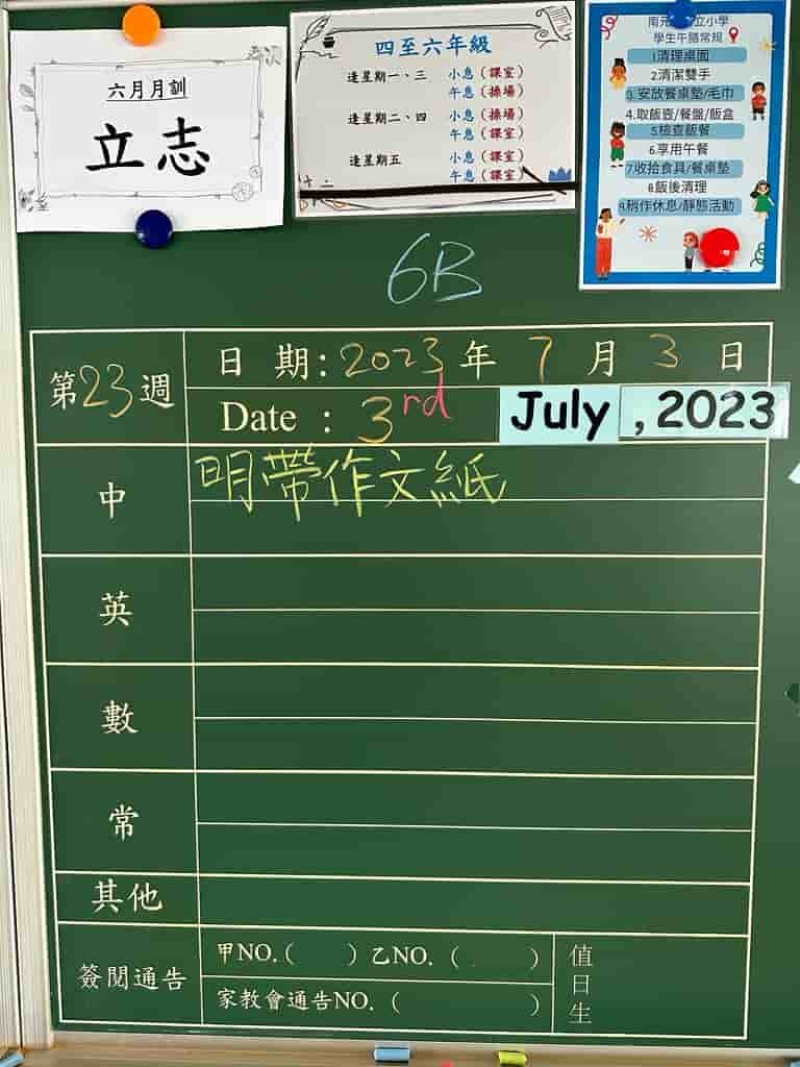 六月月訓
立志
四至六年級
逢星期一、三 小息（課室）
午息（操場）
逢星期二、四 小息（操場）
午息（課室）
逢星期五 小息（課室）
午息（課室）
立小學
學生午膳常規
1清理桌面
2清潔雙手
3.安放餐桌墊/毛巾
4.取飯壼/餐盤/飯盒
5檢查飯餐
6.享用午餐
7.收拾食具/餐桌墊
8.飯後清理
9.稍作休息/靜態活動
6B
第23週
日 期:2023年7月3日
Date : 3rd July ,2023
中
明帶作文紙
英
數
常
其他
簽閱通告
甲NO.( ) 乙NO. ( )
家教會通告NO. ( )
值日生